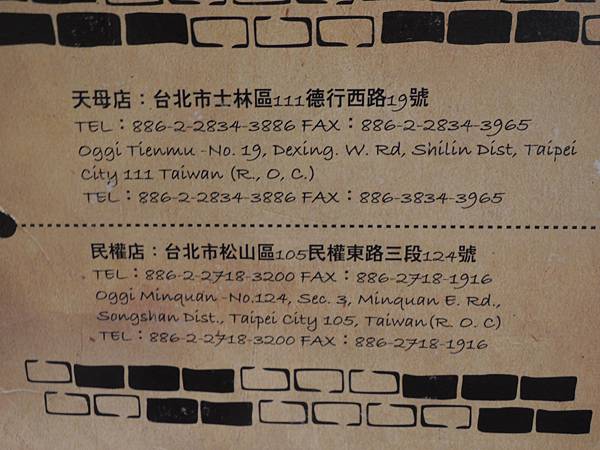 天母店：台北市士林區111德行西路19號
TEL：886-2-2834-3886 FAX：886-2-2834-3965
Oggi Tienmu -No. 19, Dexing. W. Rd, Shilin Dist, Taipei
City 111 Taiwan (R., O, C.)
TEL：886-2-2834-3886 FAX：886-3834-3965
民權店：台北市松山區105民權東路三段124號
TEL：886-2-2718-3200 FAX：886-2718-1916
Oggi Minquan -No.124, Sec. 3, Minquan E. Rd.,
Songshan Dist., Taipei City 105, Taiwan (R. O. C)
TEL：886-2-2718-3200 FAX：886-2718-1916